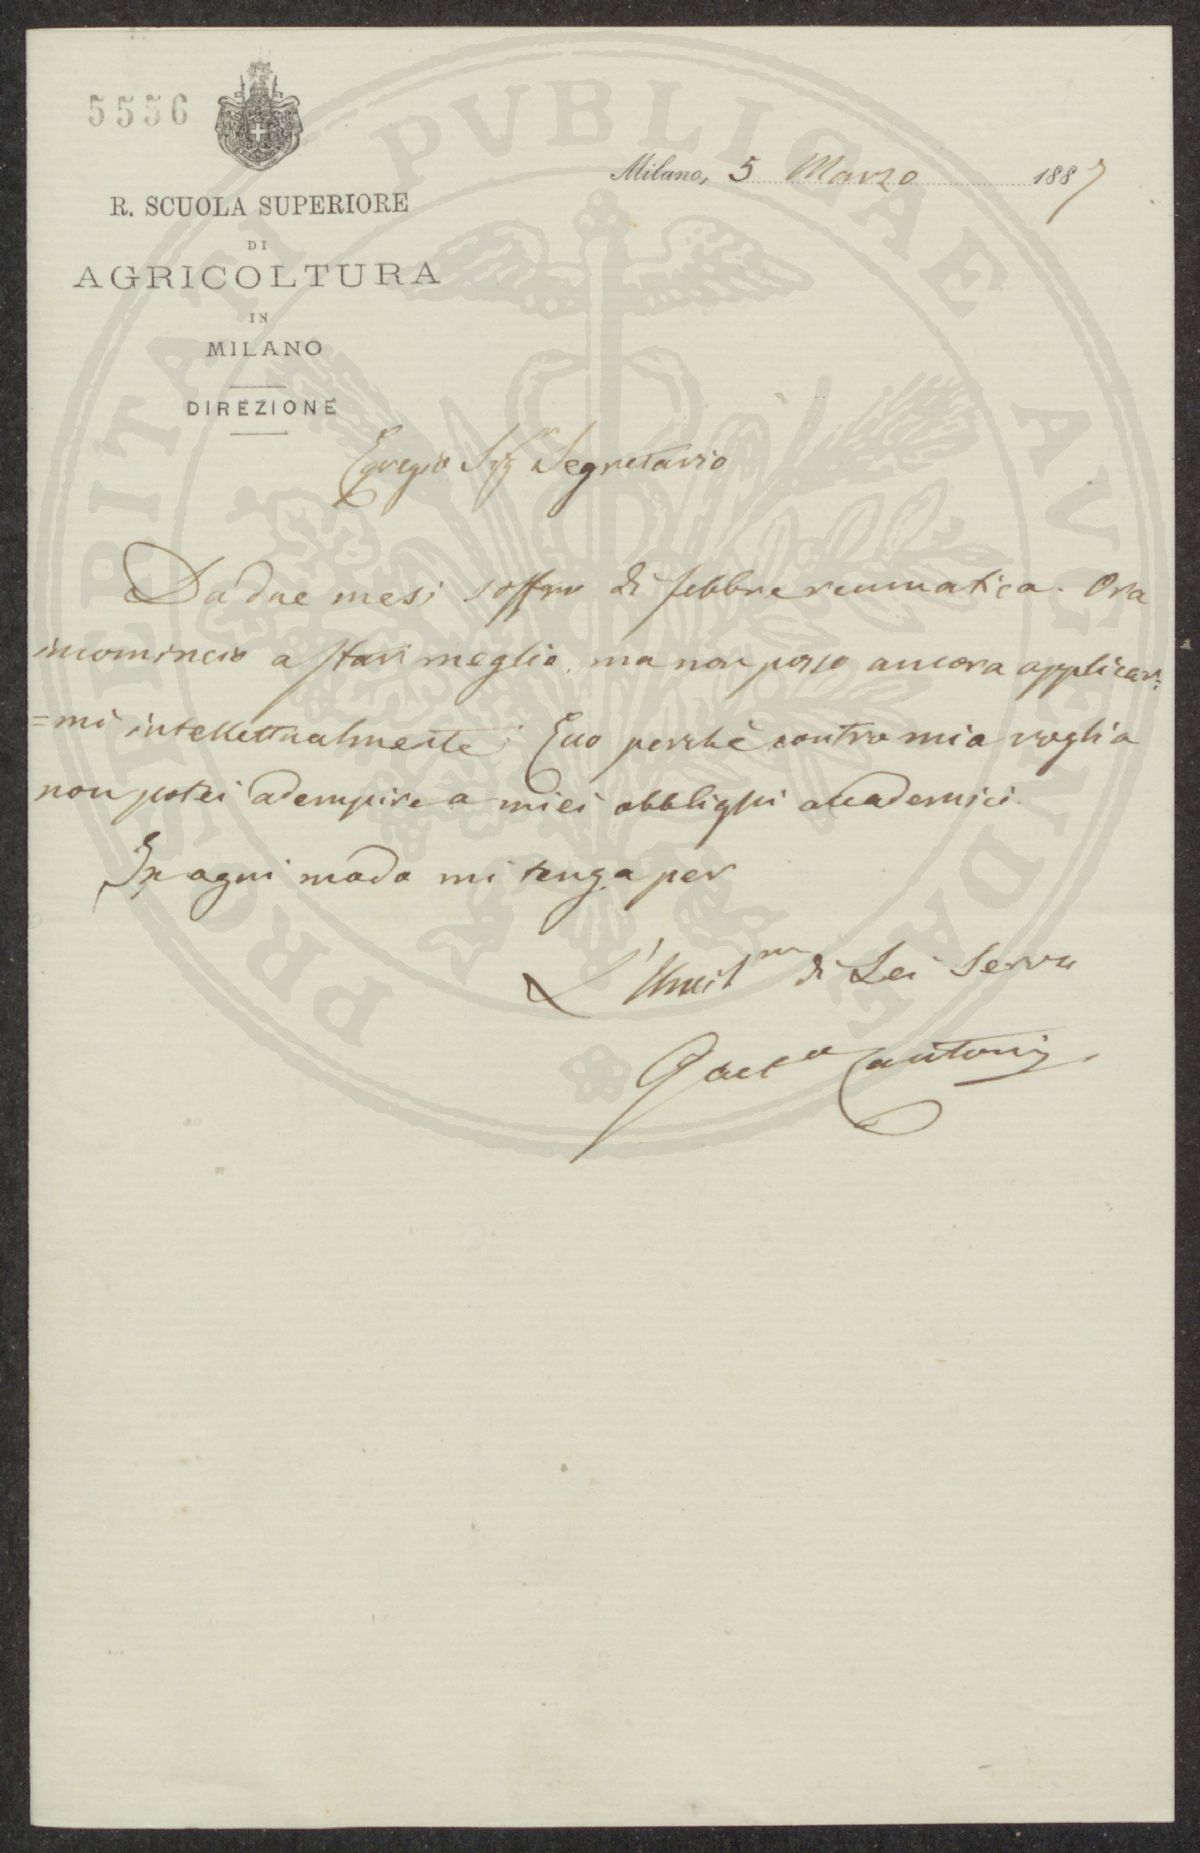 5556
R. SCUOLA SUPERIORE
DI
AGRICOLTURA
IN
MILANO
DIREZIONE
Milano, 5 Marzo 1887
Egregio Sigr Segretario
Da due mesi soffro di febbre reumatica. Ora
incomincio a star meglio, ma non posso ancora applicar=
=mi intellettualmente. Ecco perchè contro mia voglia
non potei adempire a miei obblighi accademici.
In ogni modo mi tenga per
L'Umilmo di Lei Servo
Gaeto Cantoni
PROSPERITATI PVBLICAE AVGENDAE